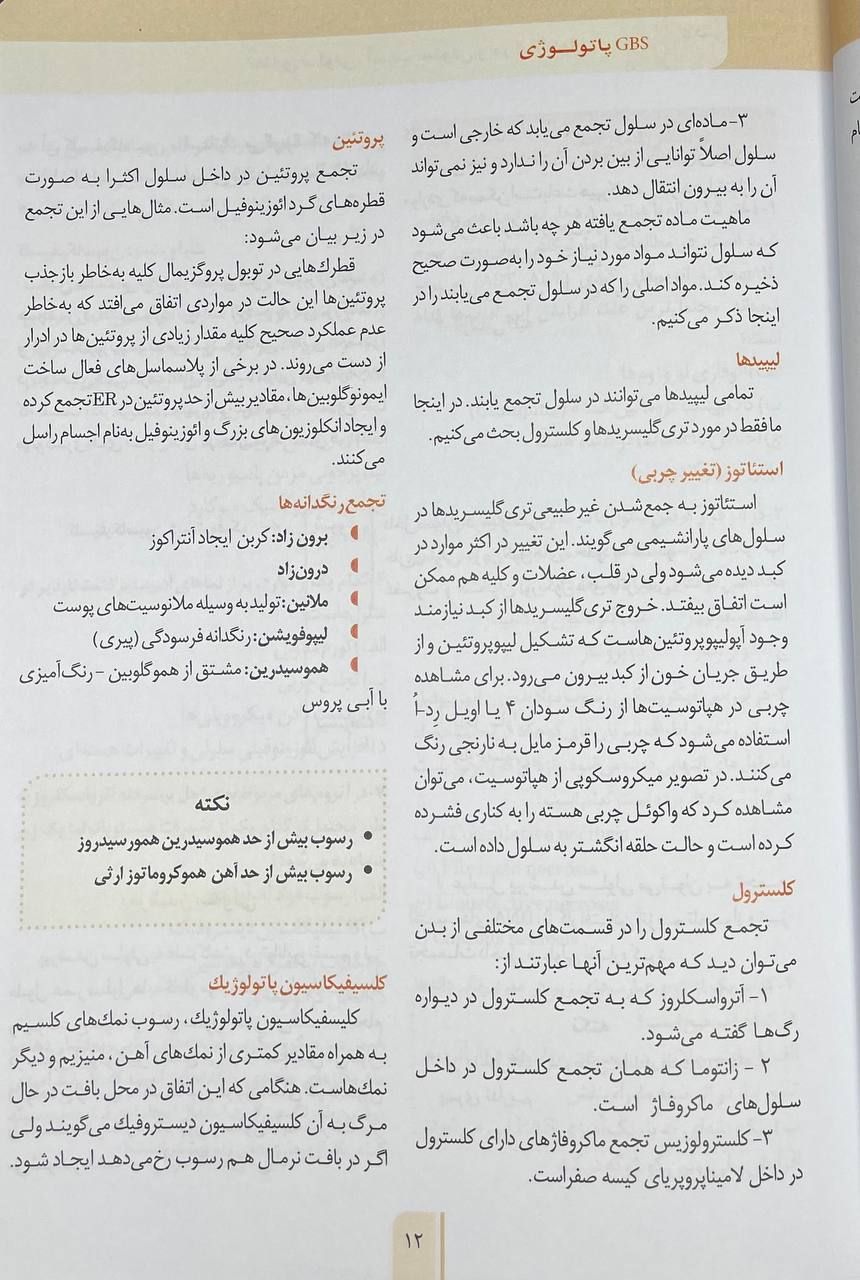 GBS پاتولوژی
۳- ماده‌ای در سلول تجمع می‌یابد که خارجی است و
سلول اصلاً توانایی از بین بردن آن را ندارد و نیز نمی‌تواند
آن را به بیرون انتقال دهد.
ماهیت ماده تجمع یافته هر چه باشد باعث می‌شود
که سلول نتواند مواد مورد نیاز خود را به‌صورت صحیح
ذخیره کند. مواد اصلی را که در سلول تجمع می‌یابند را در
اینجا ذکر می‌کنیم.
لیپیدها
تمامی لیپیدها می‌توانند در سلول تجمع یابند. در اینجا
ما فقط در مورد تری‌گلیسریدها و کلسترول بحث می‌کنیم.
استئاتوز (تغییر چربی)
استئاتوز به جمع‌شدن غیرطبیعی تری‌گلیسریدها در
سلول‌های پارانشیمی می‌گویند. این تغییر در اکثر موارد در
کبد دیده می‌شود ولی در قلب، عضلات و کلیه هم ممکن
است اتفاق بیفتد. خروج تری‌گلیسریدها از کبد نیازمند
وجود آپولیپوپروتئین‌هاست که تشکیل لیپوپروتئین و از
طریق جریان خون از کبد بیرون می‌رود. برای مشاهده
چربی در هپاتوسیت‌ها از رنگ سودان ۴ یا اویل رِد-اُ
استفاده می‌شود که چربی را قرمز مایل به نارنجی رنگ
می‌کنند. در تصویر میکروسکوپی از هپاتوسیت، می‌توان
مشاهده کرد که واکوئل چربی هسته را به کناری فشرده
کرده است و حالت حلقه انگشتر به سلول داده است.
کلسترول
تجمع کلسترول را در قسمت‌های مختلفی از بدن
می‌توان دید که مهم‌ترین آنها عبارتند از:
۱- آترواسکلروز که به تجمع کلسترول در دیواره
رگ‌ها گفته می‌شود.
۲ - زانتوما که همان تجمع کلسترول در داخل
سلول‌های ماکروفاژ است.
۳- کلسترولوزیس تجمع ماکروفاژهای دارای کلسترول
در داخل لامیناپروپریای کیسه صفراست.
پروتئین
تجمع پروتئین در داخل سلول اکثرا به صورت
قطره‌های گرد ائوزینوفیل است. مثال‌هایی از این تجمع
در زیر بیان می‌شود:
قطرك‌هایی در توبول پروگزیمال کلیه به‌خاطر بازجذب
پروتئین‌ها این حالت در مواردی اتفاق می‌افتد که به‌خاطر
عدم عملکرد صحیح کلیه مقدار زیادی از پروتئین‌ها در ادرار
از دست می‌روند. در برخی از پلاسماسل‌های فعال ساخت
ایمونوگلوبین‌ها، مقادیر بیش از حد پروتئین در ER تجمع کرده
و ایجاد انکلوزیون‌های بزرگ و ائوزینوفیل به‌نام اجسام راسل
می‌کنند.
تجمع رنگدانه‌ها
برون زاد: کربن ایجاد آنتراکوز
درون‌زاد
ملانین: تولید به وسیله ملانوسیت‌های پوست
لیپوفویشن: رنگدانه فرسودگی (پیری)
هموسیدرین: مشتق از هموگلوبین - رنگ‌آمیزی
با آبی پروس
نکته
• رسوب بیش از حد هموسیدرین همورسیدروز
• رسوب بیش از حد آهن هموکروماتوز ارثی
کلسیفیکاسیون پاتولوژیك
کلیسفیکاسیون پاتولوژیك، رسوب نمك‌های کلسیم
به همراه مقادیر کمتری از نمك‌های آهن، منیزیم و دیگر
نمك‌هاست. هنگامی که این اتفاق در محل بافت در حال
مرگ به آن کلسیفیکاسیون دیستروفیك می‌گویند ولی
اگر در بافت نرمال هم رسوب رخ می‌دهد ایجاد شود.
۱۲